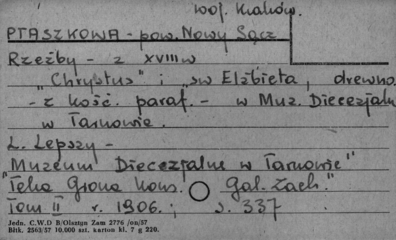 woj. Kraków.
PTASZKOWA - pow. Nowy Sącz
Rzeźby - z XVIII w
"Chrystus" i "św Elżbieta, drewno
- z kość. paraf. - w Muz. Diecezjaln
w Tarnowie.
L. Lepszy -
"Muzeum Diecezjalne w Tarnowie"
"Teka Grona Kons. Gal. Zach."
Tom II r. 1906.; s. 337
Jedn. C.W.D B/Olsztyn Zam 2776 /on/57
Bitk. 2563/57 10.000 szt. karton kl. 7 g 220.